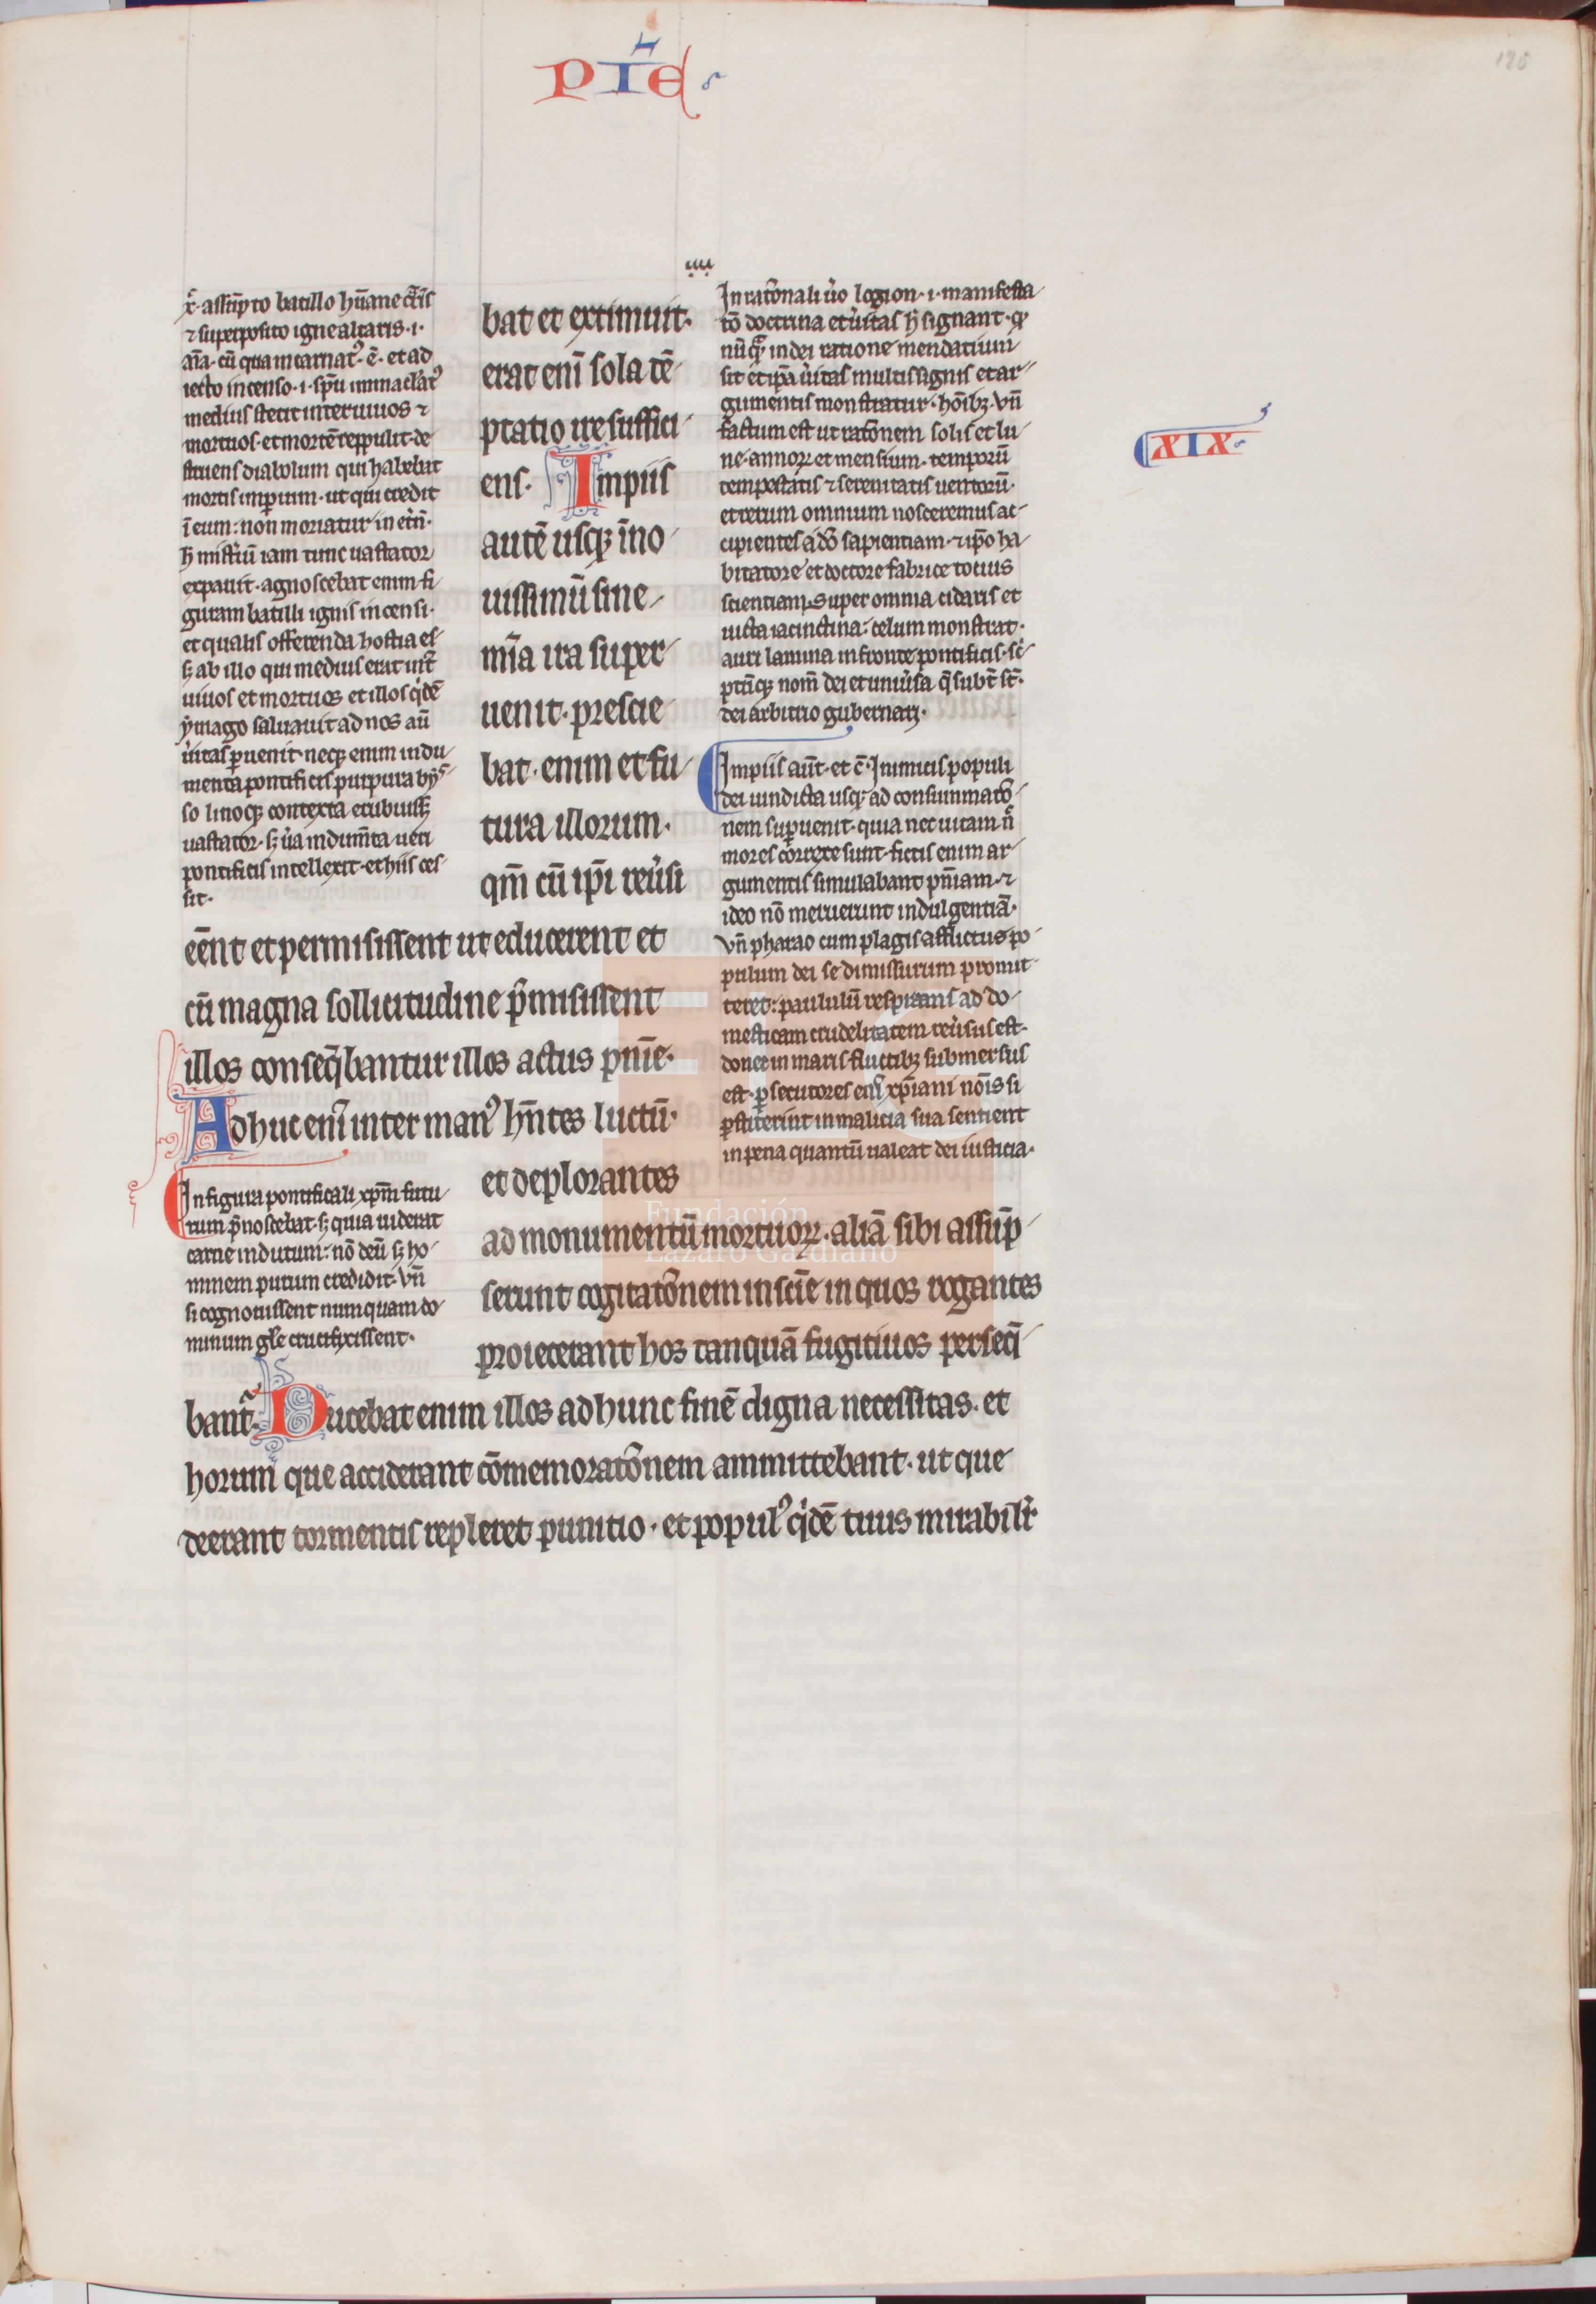 PIĒ
125
x̄. assūpto batillo hūane c̄nis
⁊ superposito igne altaris .i.
aīa. cū qua incarnatꝰ .ē. et ad
iecto incenso .i. sp̄u inmaclatꝰ
medius stetit inter uiuos ⁊
mortuos. et mortē reppulit. de
struens diabolum qui habebat
mortis imperium. ut qui credit
ī eum: non moriatur in et̄n.
h̄ mistiū iam tunc uastator
expauit. agnoscebat enim fi
guram batilli ignis incensi.
et qualis offerenda hostia es
ab illo qui medius erat int̄
uiuos et mortuos et illos q̇dē
ymago saluauit ad nos aū
u̇itas ꝑuenit. neqꝫ enim indu
menta pontificis purpura bys
so linoqꝫ contexta erubuissꝫ
uastator. sꝫ u̇a indum̄ta ueri
pontificis intellexit. et hiis ces
sit.
bat et extimuit.
erat enī sola tē
ptatio ire suffici
ens. Impiis
autē usqꝫ īno
uissimū sine
mīa ira super
uenit. prescie
bat. enim et fu
tura illorum.
qm̄ cū ip̄i reu̇si
eēnt et permisissent ut educerent et
cū magna sollicitudine p̄misissent
illos conseq̄bantur illos actus pnīe.
Adhuc enī inter manꝰ hn̄tes luctū.
et deplorantes
ad monumentū mortuoꝝ. aliā sibi assūp
serunt cogitatōnem inscīe in quos rogantes
proiecerant hos tanquā fugitiuos perseq̄
bant̄. Ducebat enim illos ad hunc finē digna necessitas. et
horum que acciderant cōmemoratōnem ammittebant. ut que
deerant tormentis repleret punitio. et populꝰ q̇dē tuus mirabilit̄
In figura pontificali xp̄m futu
rum p̄noscebat. sꝫ quia uiderat
carne indutum: nō deū sꝫ ho
minem purum credidit. vn̄
si cognouissent numquam do
minum gl̄e crucifixissent.
iiii
In ratōnali u̇o logion .i. manifesta
tō doctrina et u̇itas h̄ signant. qꝫ
nūq̄ in dei ratione mendatium
sit et ip̄a u̇itas multis signis et ar
gumentis monstratur. hoībꝫ. vn̄
factum est ut ratōnem solis et lu
ne. annoꝝ et mensium. temporū
tempestatis ⁊ serenitatis uentorū.
et rerum omnium nosceremus ac
cipientes a dō sapientiam. ⁊ ip̄o ha
bitatore et doctore fabrice totius
scientiam. Super omnia cidaris et
uicta iacinctina: celum monstrat.
auri lamina in fronte pontificis. sc̄
ptūqꝫ nom̄ dei et uniu̇sa q̄ subt̄ st̄.
dei arbitrio gubernari.
Impiis aūt. et c̄. Inimicis populi
dei uindicta usqꝫ ad consummatō
nem suꝑuenit. quia nec uitam n̄
mores correxe sunt. fictis enim ar
gumentis simulabant pn̄iam. ⁊
ideo nō meruerunt indulgentiā.
vn̄ pharao cum plagis afflictus po
pulum dei se dimissurum promit
teret: paululū respirans ad do
mesticam crudelitatem reu̇sus est.
donec in maris fluctibꝫ submersus
est. ꝑsecutores xp̄iani nōis si
ꝑstiterint in malicia sua sentient
in pena quantū ualeat dei iusticia.
XIX
Fundación
Lázaro Galdiano